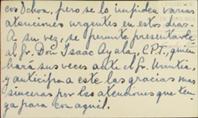 cos Ochoa, pero se lo impiden varias
atenciones urgentes en estos dias.
A su vez, se permite presentarle
al Sr. Don Isaac Ayala, C.P.T., quien
hará sus veces ante el Sr.
y anticipa a este las gracias mas
sinceras por las atenciones que ten
ga para con aquél.